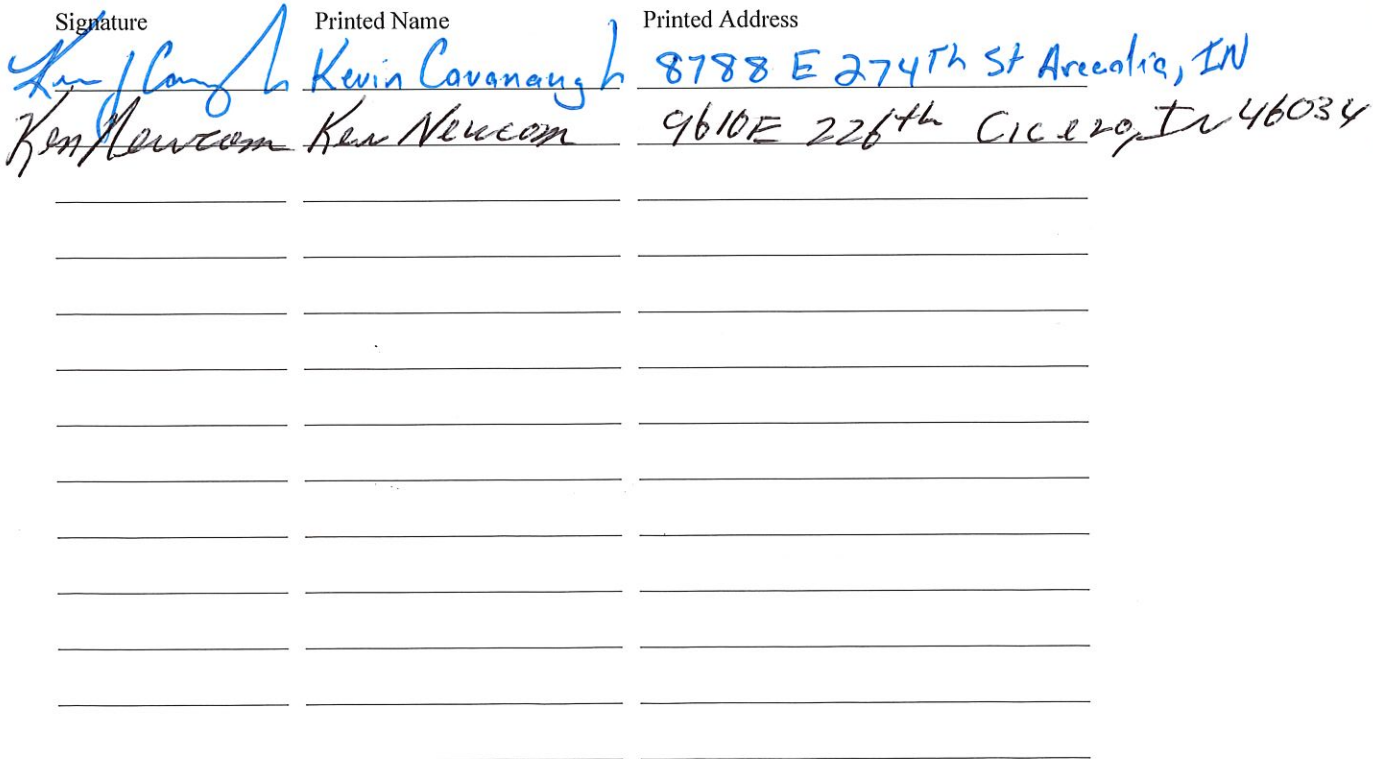 Signature Printed Name Printed Address
Kevin Cavanaugh 8788 E 274Th St Arcadia, IN
Ken Newcom Ken Newcom 9610E 226th Cicero, In 46034